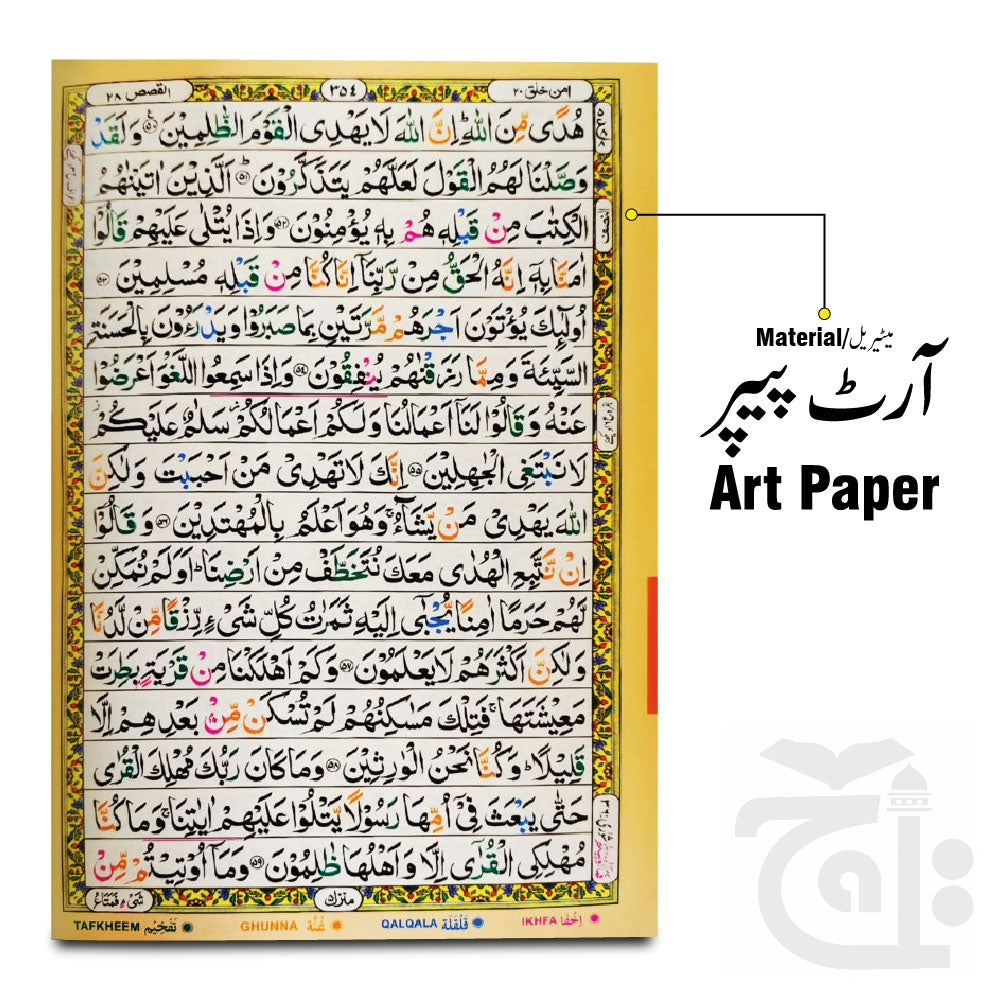 امن خلق ٢٠
٣٥٤
القصص ٢٨
هُدًى مِّنَ اللّٰهِ ؕ اِنَّ اللّٰهَ لَا يَهْدِى الْقَوْمَ الظّٰلِمِيْنَ ﴿۵۰﴾ وَلَقَدْ
وَصَّلْنَا لَهُمُ الْقَوْلَ لَعَلَّهُمْ يَتَذَكَّرُوْنَ ؕ﴿۵۱﴾ اَلَّذِيْنَ اٰتَيْنٰهُمُ
الْكِتٰبَ مِنْ قَبْلِهٖ هُمْ بِهٖ يُؤْمِنُوْنَ ﴿۵۲﴾ وَاِذَا يُتْلٰى عَلَيْهِمْ قَالُوْۤا
النصف
اٰمَنَّا بِهٖۤ اِنَّهُ الْحَقُّ مِنْ رَّبِّنَاۤ اِنَّا كُنَّا مِنْ قَبْلِهٖ مُسْلِمِيْنَ ﴿۵۳﴾
اُولٰٓئِكَ يُؤْتَوْنَ اَجْرَهُمْ مَّرَّتَيْنِ بِمَا صَبَرُوْا وَيَدْرَءُوْنَ بِالْحَسَنَةِ
السَّيِّئَةَ وَمِمَّا رَزَقْنٰهُمْ يُنْفِقُوْنَ ﴿۵۴﴾ وَاِذَا سَمِعُوا اللَّغْوَ اَعْرَضُوْا
عَنْهُ وَقَالُوْا لَنَاۤ اَعْمَالُنَا وَلَكُمْ اَعْمَالُكُمْ سَلٰمٌ عَلَيْكُمْ
لَا نَبْتَغِى الْجٰهِلِيْنَ ﴿۵۵﴾ اِنَّكَ لَا تَهْدِىْ مَنْ اَحْبَبْتَ وَلٰكِنَّ
اللّٰهَ يَهْدِىْ مَنْ يَّشَآءُ ۚ وَهُوَ اَعْلَمُ بِالْمُهْتَدِيْنَ ﴿۵۶﴾ وَقَالُوْۤا
اِنْ نَّتَّبِعِ الْهُدٰى مَعَكَ نُتَخَطَّفْ مِنْ اَرْضِنَا ؕ اَوَلَمْ نُمَكِّنْ
لَّهُمْ حَرَمًا اٰمِنًا يُّجْبٰۤى اِلَيْهِ ثَمَرٰتُ كُلِّ شَىْءٍ رِّزْقًا مِّنْ لَّدُنَّا
وَلٰكِنَّ اَكْثَرَهُمْ لَا يَعْلَمُوْنَ ﴿۵۷﴾ وَكَمْ اَهْلَكْنَا مِنْ قَرْيَةٍۭ بَطِرَتْ
مَعِيْشَتَهَا ۚ فَتِلْكَ مَسٰكِنُهُمْ لَمْ تُسْكَنْ مِّنْۢ بَعْدِهِمْ اِلَّا
قَلِيْلًا ؕ وَكُنَّا نَحْنُ الْوٰرِثِيْنَ ﴿۵۸﴾ وَمَا كَانَ رَبُّكَ مُهْلِكَ الْقُرٰى
حَتّٰى يَبْعَثَ فِىْۤ اُمِّهَا رَسُوْلًا يَّتْلُوْا عَلَيْهِمْ اٰيٰتِنَا ۚ وَمَا كُنَّا
مُهْلِكِى الْقُرٰٓى اِلَّا وَاَهْلُهَا ظٰلِمُوْنَ ﴿۵۹﴾ وَمَاۤ اُوْتِيْتُمْ مِّنْ
منزل
شَىْءٍ فَمَتَاعُ
IKHFA اِخفَا
QALQALA قَلْقَلَة
GHUNNA غُنَّة
TAFKHEEM تَفْخِيْم
Material/میٹیریل
آرٹ پیپر
Art Paper